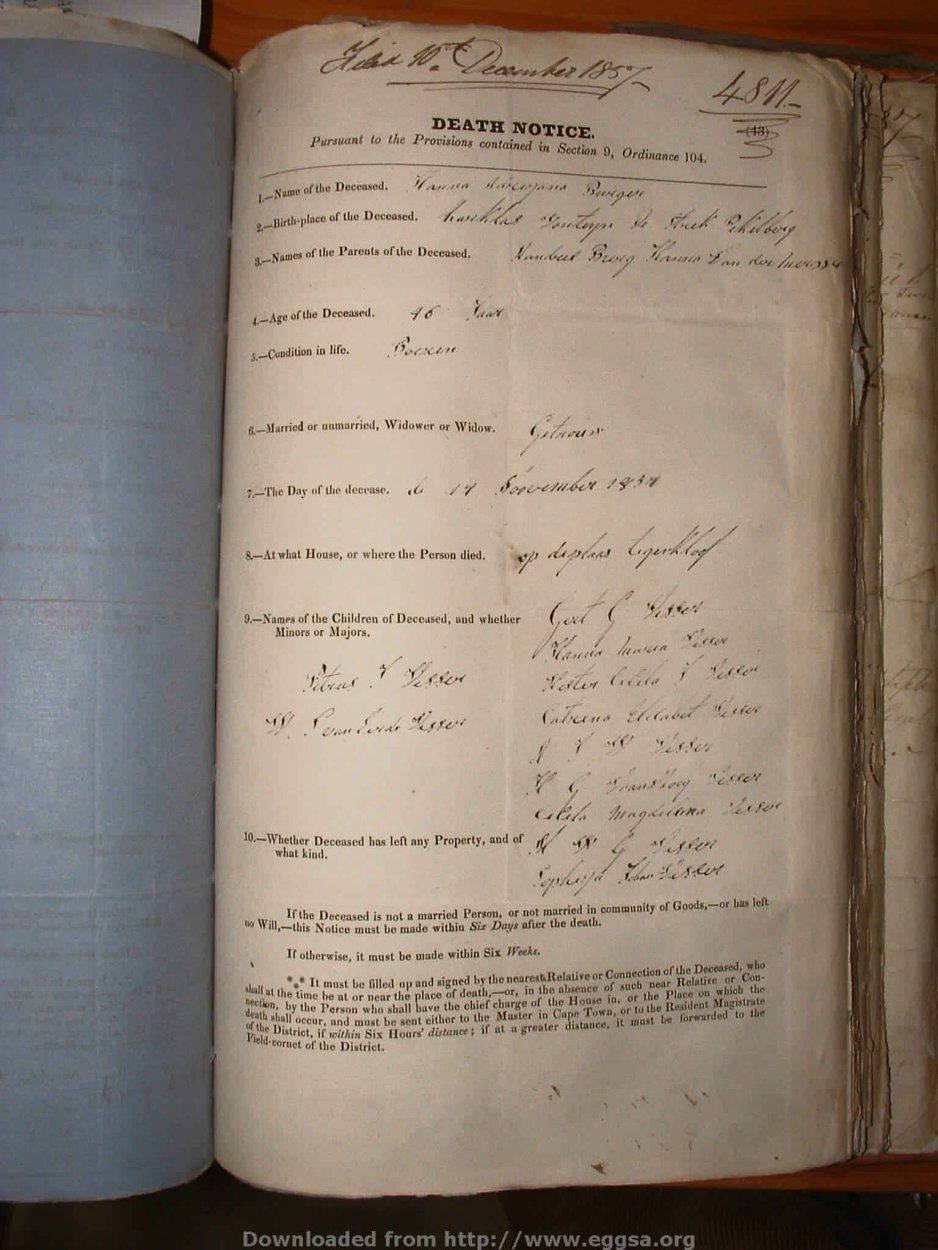 Filed 10th December 1857
4811.
(13)
DEATH NOTICE.
Pursuant to the Provisions contained in Section 9, Ordinance 104.
1.—Name of the Deceased. Hanna Burger
2.—Birth-place of the Deceased.
3.—Names of the Parents of the Deceased. Hanna Van der
4.—Age of the Deceased. 46 Jaar
5.—Condition in life.
6.—Married or unmarried, Widower or Widow. Getrouw
7.—The Day of the decease. de 14 November
8.—At what House, or where the Person died. op deplaas tigerkloof
9.—Names of the Children of Deceased, and whether Gert G Visser
Minors or Majors. Hanna Maria Visser
Petrus J Visser Hester Celela J Visser
W. Visser Catrina Elisabet Visser
Visser
H G Visser
Celela Magdelena Visser
10.—Whether Deceased has left any Property, and of W G Visser
what kind. Visser
If the Deceased is not a married Person, or not married in community of Goods,—or has left
no Will,—this Notice must be made within Six Days after the death.
If otherwise, it must be made within Six Weeks.
*** It must be filled up and signed by the nearest Relative or Connection of the Deceased, who
shall at the time be at or near the place of death,—or, in the absence of such near Relative or Con-
nection, by the Person who shall have the chief charge of the House in, or the Place on which the
death shall occur, and must be sent either to the Master in Cape Town, or to the Resident Magistrate
of the District, if within Six Hours' distance; if at a greater distance, it must be forwarded to the
Field-cornet of the District.
Downloaded from http://www.eggsa.org